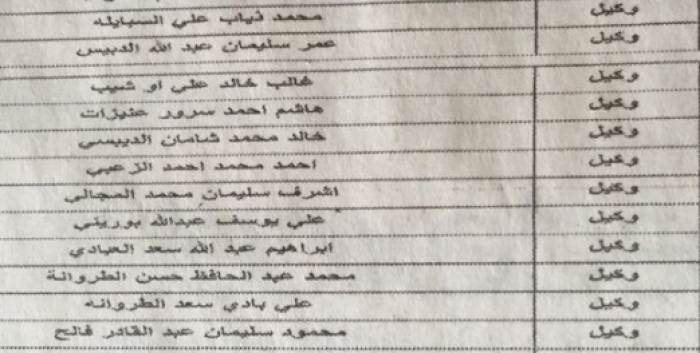 وكيل محمد ذياب علي السبايله
وكيل عمر سليمان عبد الله الدبيس
وكيل غالب خالد علي او شيب
وكيل هاشم احمد سرور عنيزات
وكيل خالد محمد شامان الدبيسي
وكيل احمد محمد احمد الزعبي
وكيل اشرف سليمان محمد المجالي
وكيل علي يوسف عبدالله بوريني
وكيل ابراهيم عبد الله سعد العبادي
وكيل محمد عبد الحافظ حسن الطروانة
وكيل علي بادي سعد الطروانه
وكيل محمود سليمان عبد القادر فالح